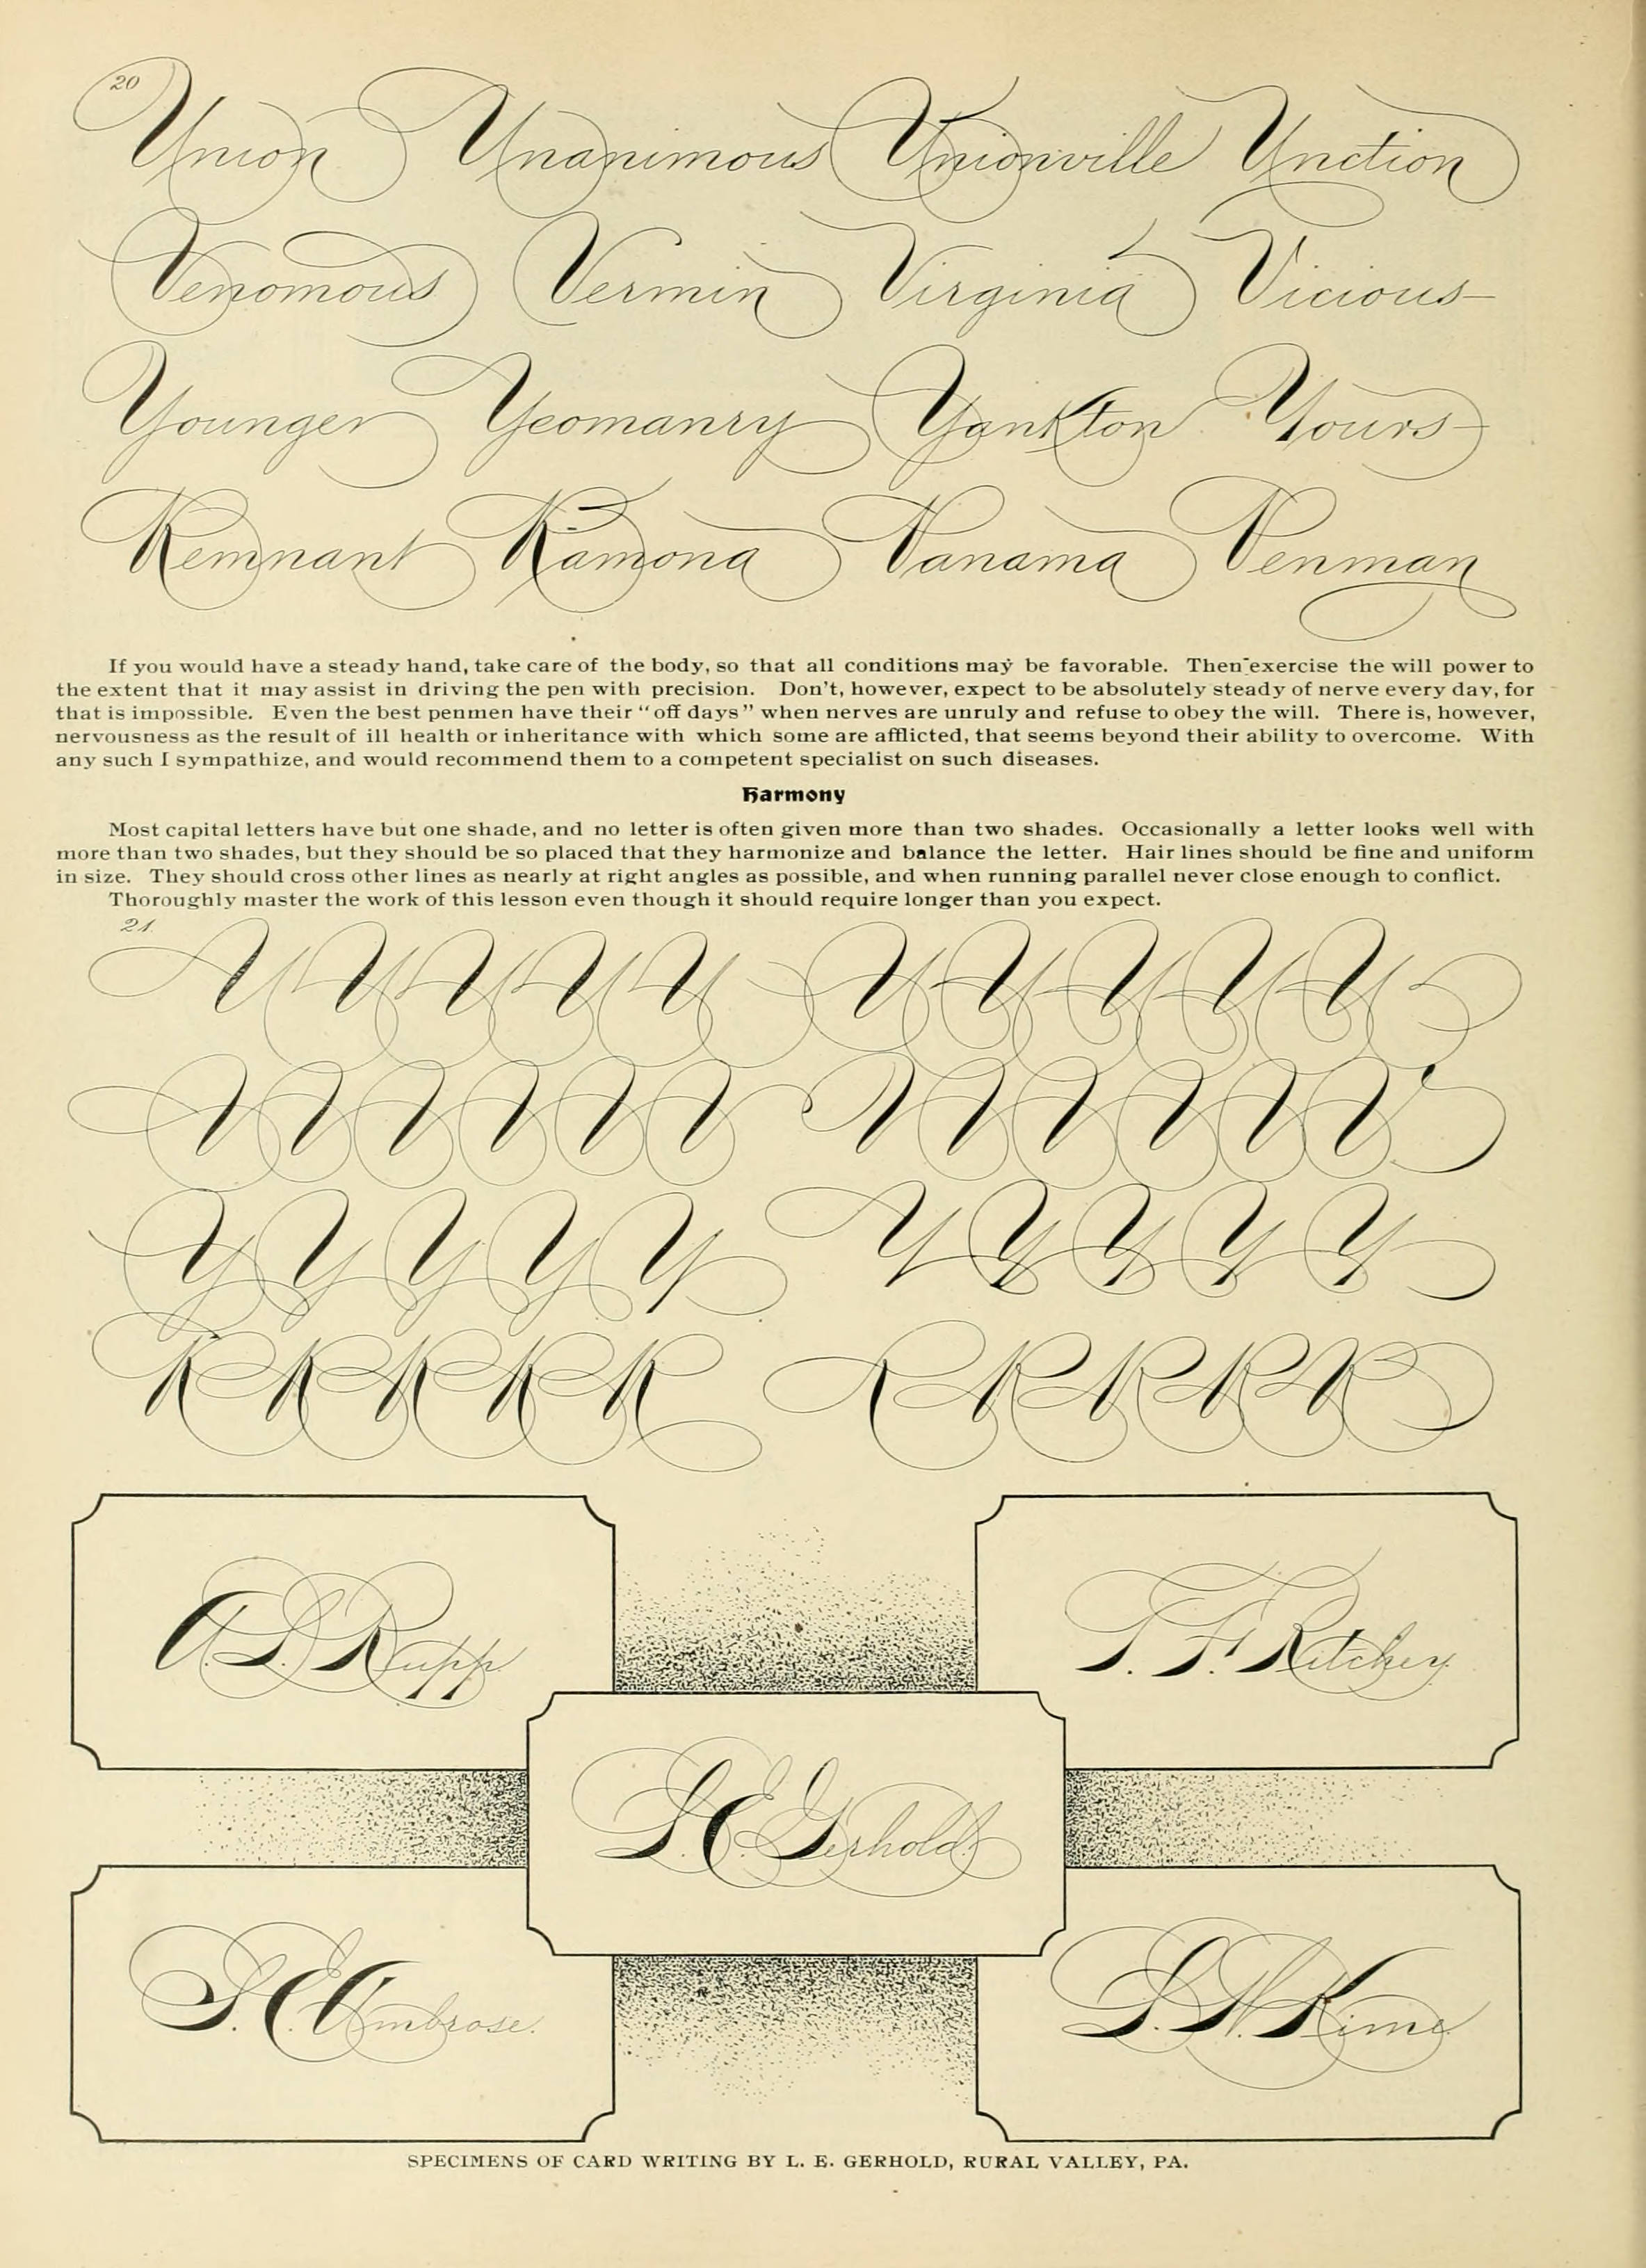 20
Union Unanimous Unionville Unction
Venomous Vermin Virginia Vicious
Younger Yeomanry Yankton Yours
Remnant Ramona Panama Penman
If you would have a steady hand, take care of the body, so that all conditions may be favorable. Then exercise the will power to
the extent that it may assist in driving the pen with precision. Don't, however, expect to be absolutely steady of nerve every day, for
that is impossible. Even the best penmen have their "off days" when nerves are unruly and refuse to obey the will. There is, however,
nervousness as the result of ill health or inheritance with which some are afflicted, that seems beyond their ability to overcome. With
any such I sympathize, and would recommend them to a competent specialist on such diseases.
Harmony
Most capital letters have but one shade, and no letter is often given more than two shades. Occasionally a letter looks well with
more than two shades, but they should be so placed that they harmonize and balance the letter. Hair lines should be fine and uniform
in size. They should cross other lines as nearly at right angles as possible, and when running parallel never close enough to conflict.
Thoroughly master the work of this lesson even though it should require longer than you expect.
21.
U U U U U U U U U U
V V V V V V V V V V V
Y Y Y Y Y Y Y Y Y Y
R R R R R R R R R R
A. L. Rupp.
T. F. Ritchey.
L. E. Gerhold.
S. C. Ambrose.
L. W. Kime
SPECIMENS OF CARD WRITING BY L. E. GERHOLD, RURAL VALLEY, PA.